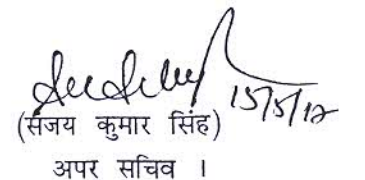 15/5/12
(संजय कुमार सिंह)
अपर सचिव ।